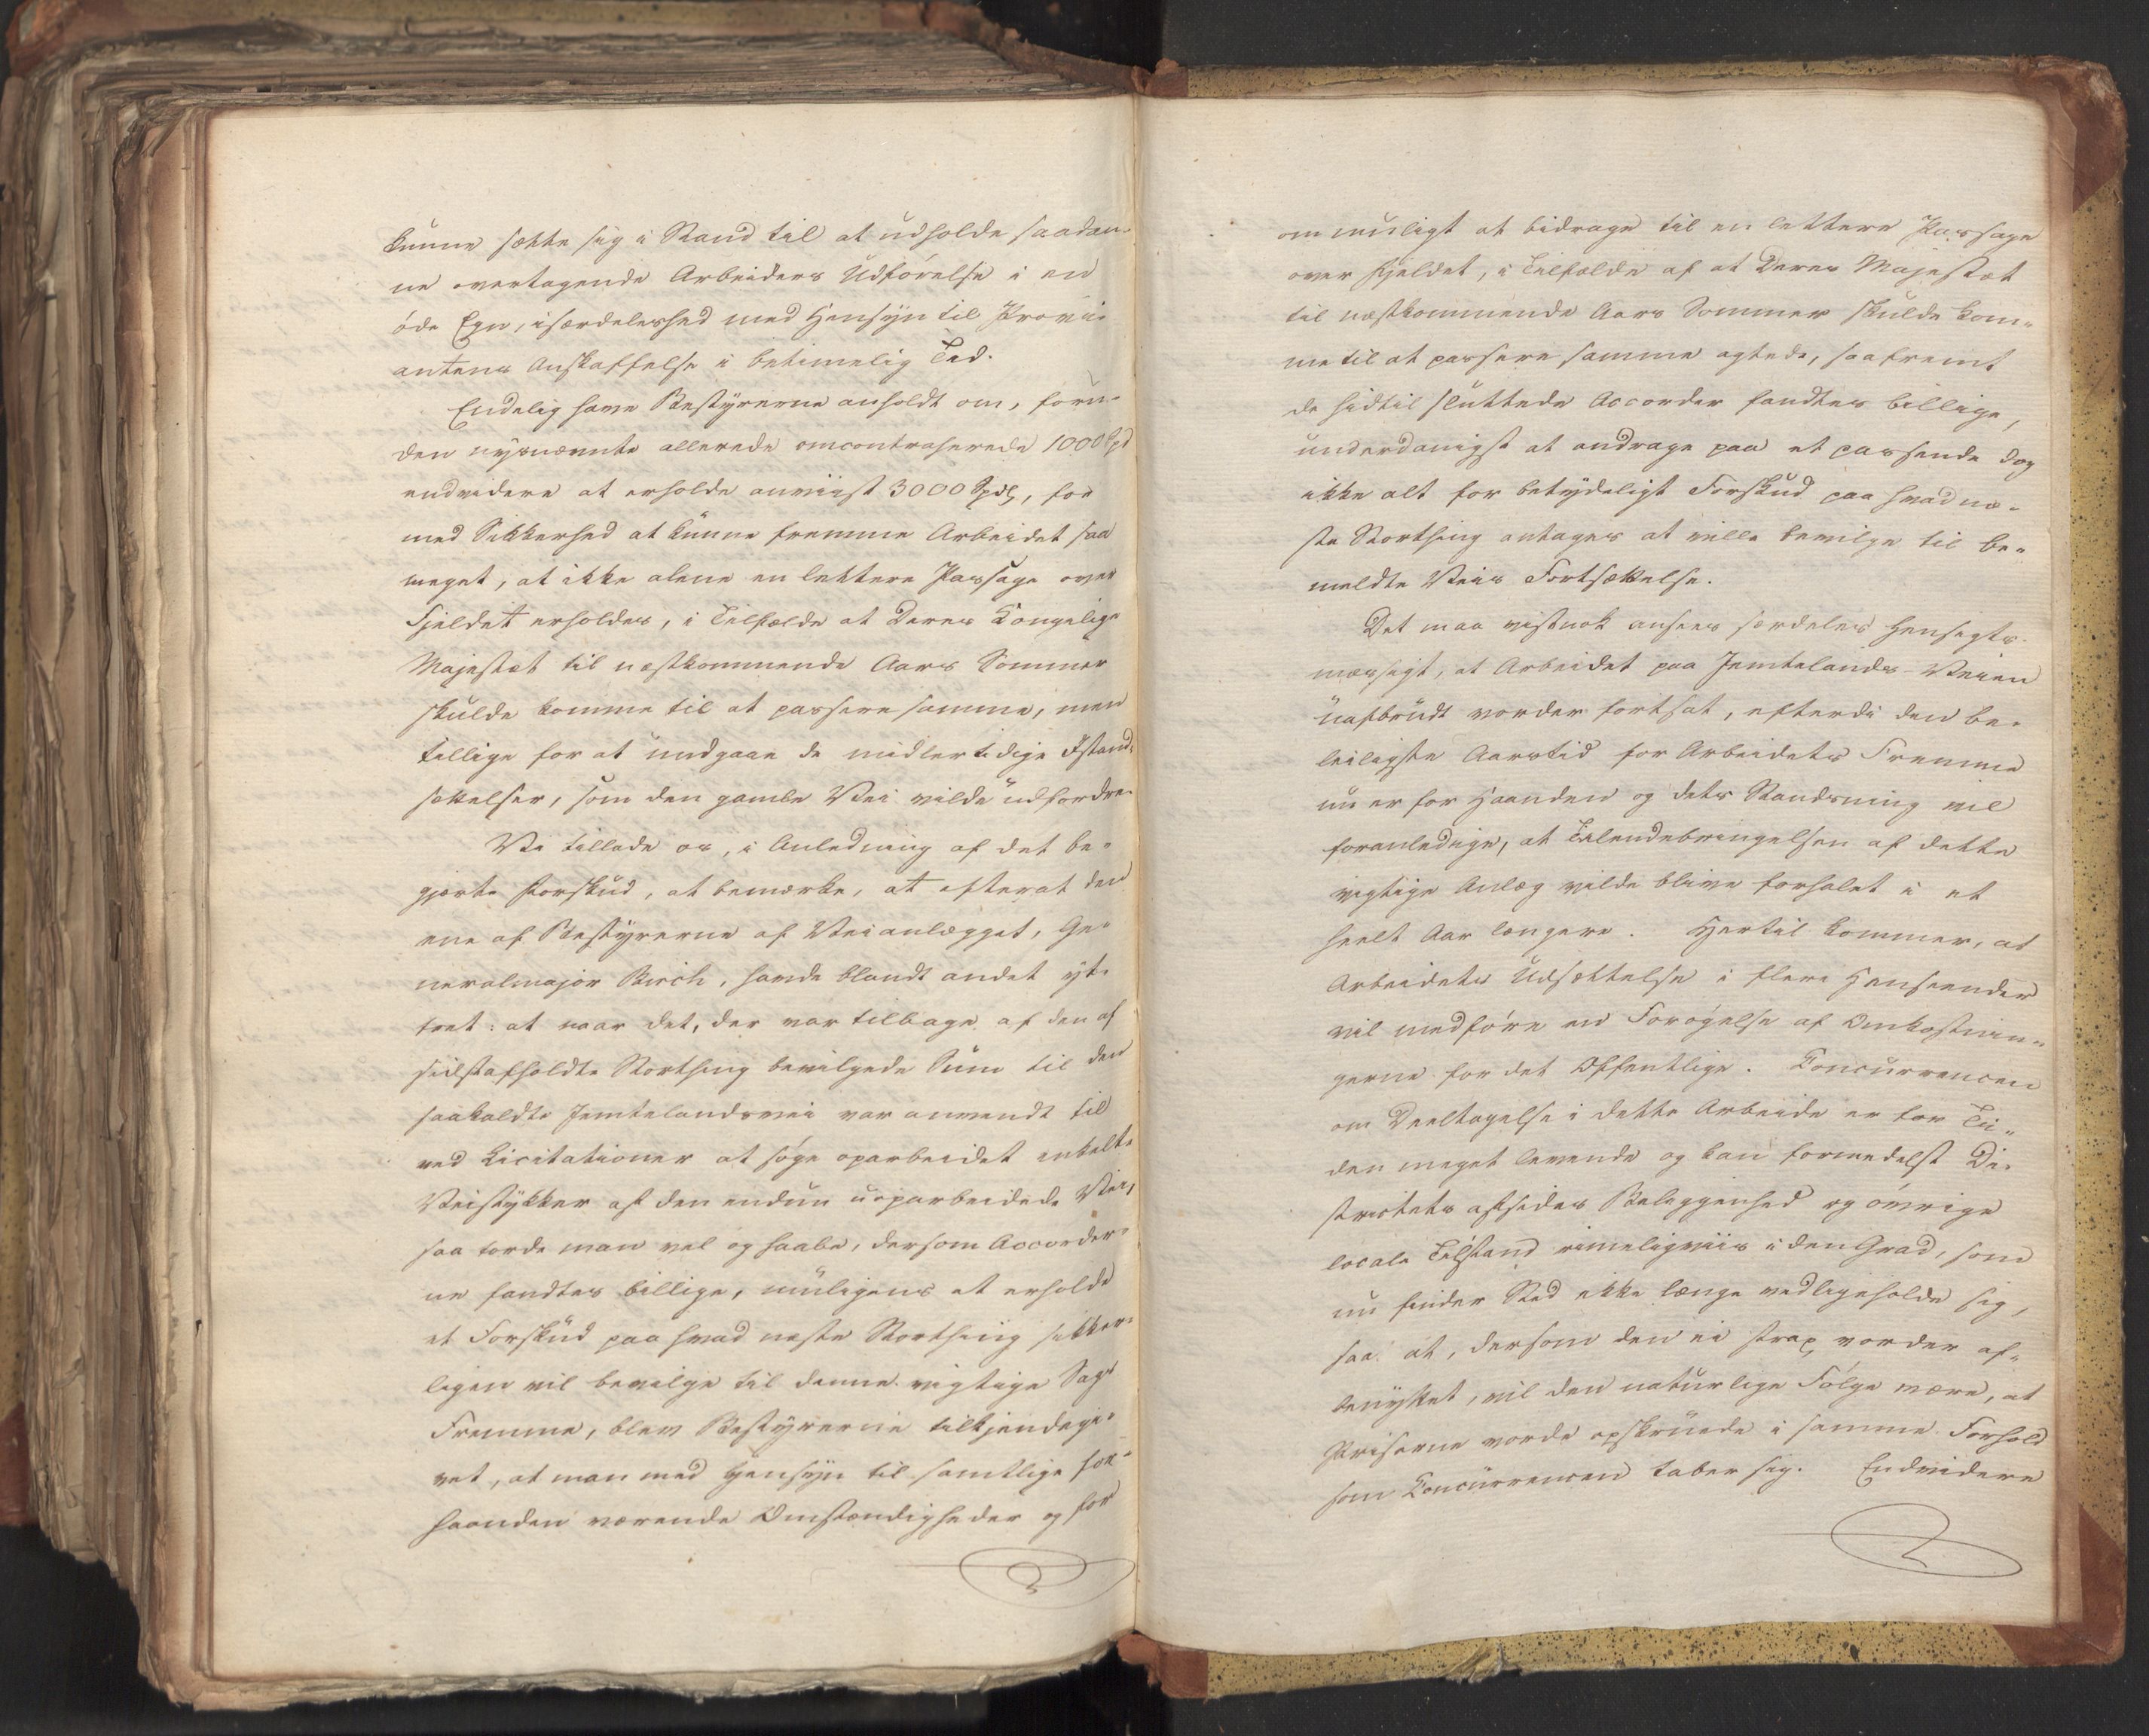 kunne sætte sig i Stand til at udholde saadan-
ne overtagende Arbeiders Udførelse i en
øde Egn, isærdeleshed med Hensyn til Provi-
antens Anskaffelse i betimelig Tid.
Endelig have Bestyrerne anholdt om, foru-
den nysnævnte allerede omcontraherede 1000 Spd
endvidere at erholde anviist 3000 Spdlr, for
med Sikkerhed at kunne fremme Arbeidet saa
meget, at ikke alene en lettere Passage over
Fjeldet erholdes, i Tilfælde at Deres Kongelige
Majestæt til næstkommende Aars Sommer
skulde komme til at passere samme, men
tillige for at undgaae de midlertidige Istand-
sættelser, som den gamle Vei vilde udfordre.
Vi tillade os, i Anledning af det be-
gjærte Forskud, at bemærke, at efterat den
ene af Bestyrerne af Veianlægget, Ge-
neralmajor Birch, havde blandt andet yt-
tret: at naar det, der var tilbage af den af
sidstafholdte Storthing bevilgede Sum til den
saakaldte Jemtelandsvei var anvendt til
ved Licitationer at søge oparbeidet enkelte
Veistykker af den endnu uoparbeidede Vei,
saa torde man vel og haabe, dersom Accorder-
ne fandtes billige, muligens at erholde
et Forskud paa hvad næste Storthing sikker-
ligen vil bevilge til denne vigtige Sags
Fremme, blev Bestyrerne tilkjendegi-
vet, at man med Hensyn til samtlige for-
haanden værende Omstændigheder og for
om muligt at bidrage til en lettere Passage
over Fjeldet, i Tilfælde af at Deres Majestæt
til næstkommende Aars Sommer skulde kom-
me til at passere samme agtede, saafremt
de hidtil sluttede Accorder fandtes billige,
underdanigst at andrage paa et passende dog
ikke alt for betydeligt Forskud paa hvad næ-
ste Storthing antages at ville bevilge til be-
meldte Veis Fortsættelse.
Det maa vistnok ansees særdeles hensigts-
mæssigt, at Arbeidet paa Jemtelands-Veien
uafbrudt vorder fortsat, efterdi den be-
leiligste Aarstid for Arbeidets Fremme
nu er for Haanden og dets Standsning vil
foranledige, at Tilendebringelsen af dette
vigtige Anlæg vilde blive forhalet i et
heelt Aar længere. Hertil kommer, at
Arbeidets Udsættelse i flere Henseender
vil medføre en Forøgelse af Omkostnin-
gerne for det Offentlige. Concurrencen
om Deeltagelse i dette Arbeide er for Ti-
den meget levende og kan formedelst Di-
strictets afsides Beliggenhed og øvrige
locale Tilstand rimeligviis i den Grad, som
nu finder Sted ikke længe vedligeholde sig,
saa at, dersom den ei strax vorder af-
benyttet, vil den naturlige Følge være, at
Priserne vorde opskruede i samme Forhold
som Concurrencen taber sig. Endvidere